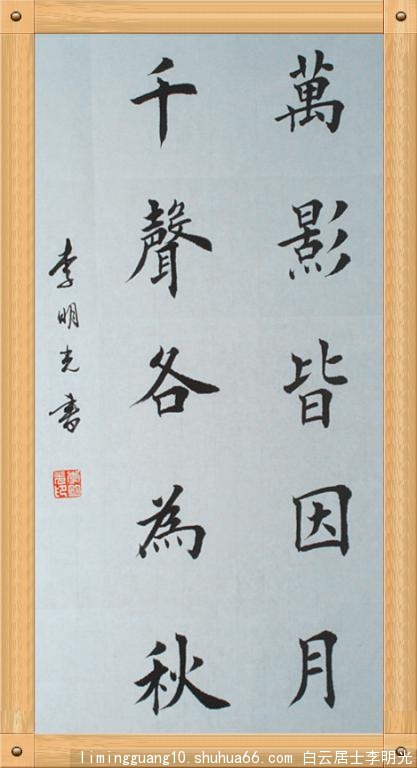 萬影皆因月
千聲各為秋
李明光書
limingguang10.shuhua66.com 白云居士李明光